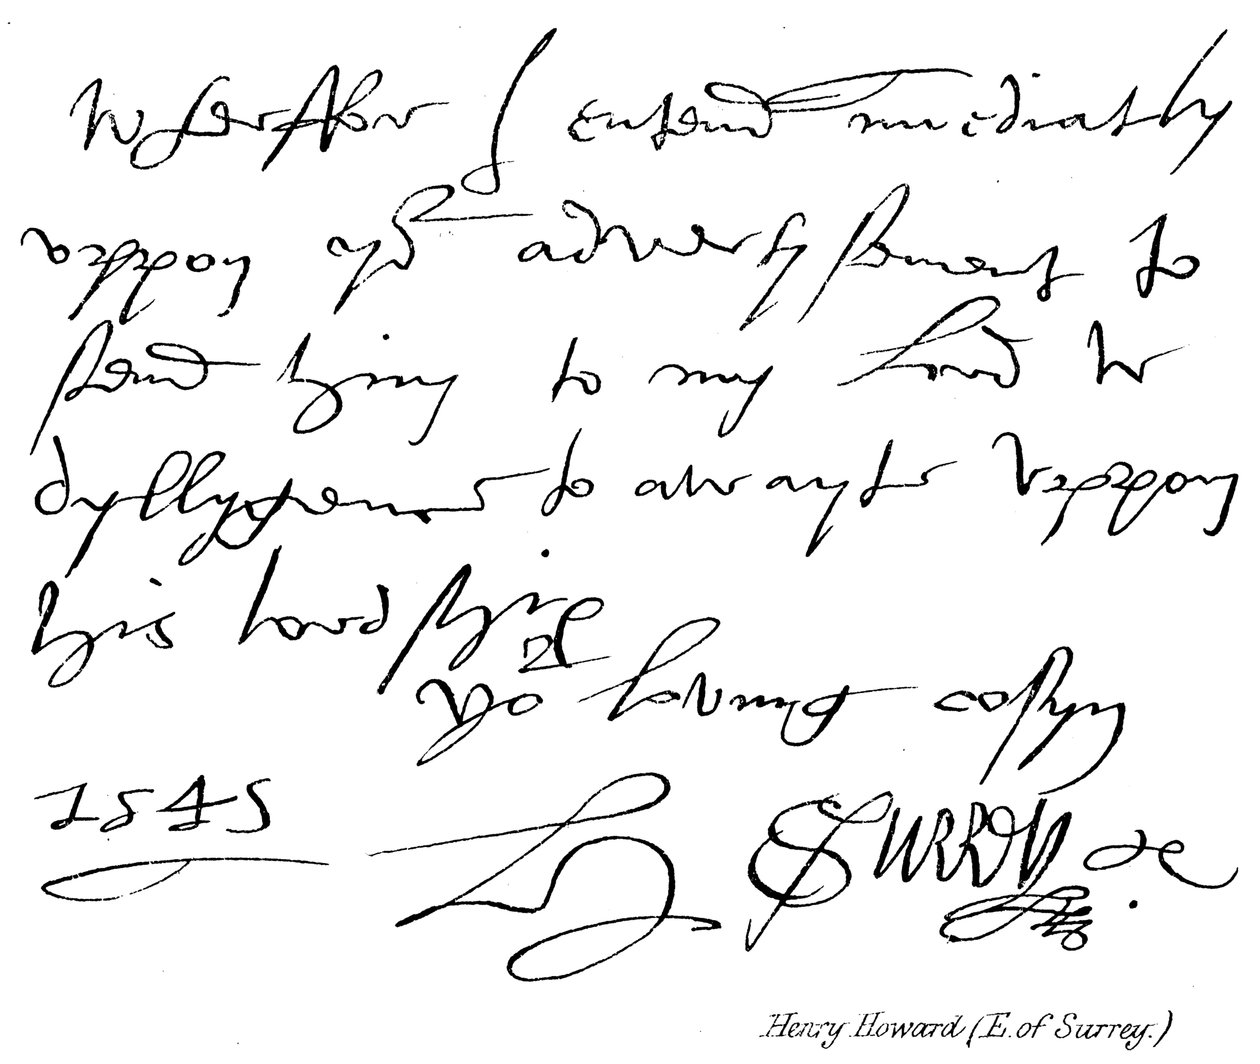 wherffor I entend imediatly
vppon yor advertysement to
send hym to my lord w
dyllygence to awayte vppon
his lordship
yor loving cosyn
1545 H SURREY &c
Henry Howard (E. of Surrey.)